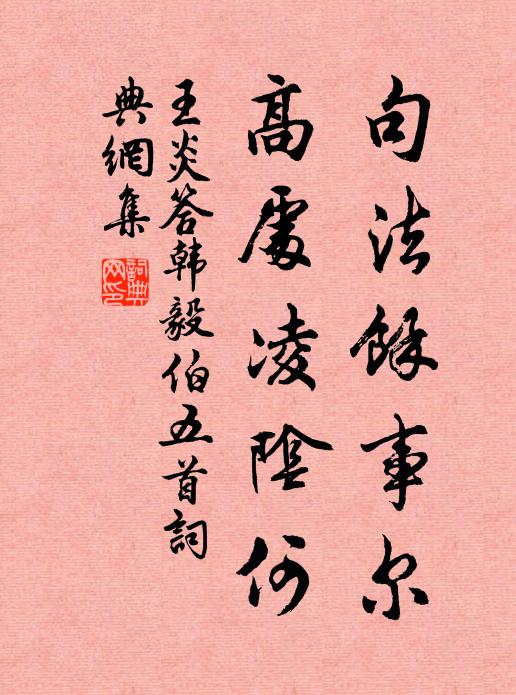 句法餘事尔
高處凌陰何
王炎答韩毅伯五首詞
典網集
詞典网印